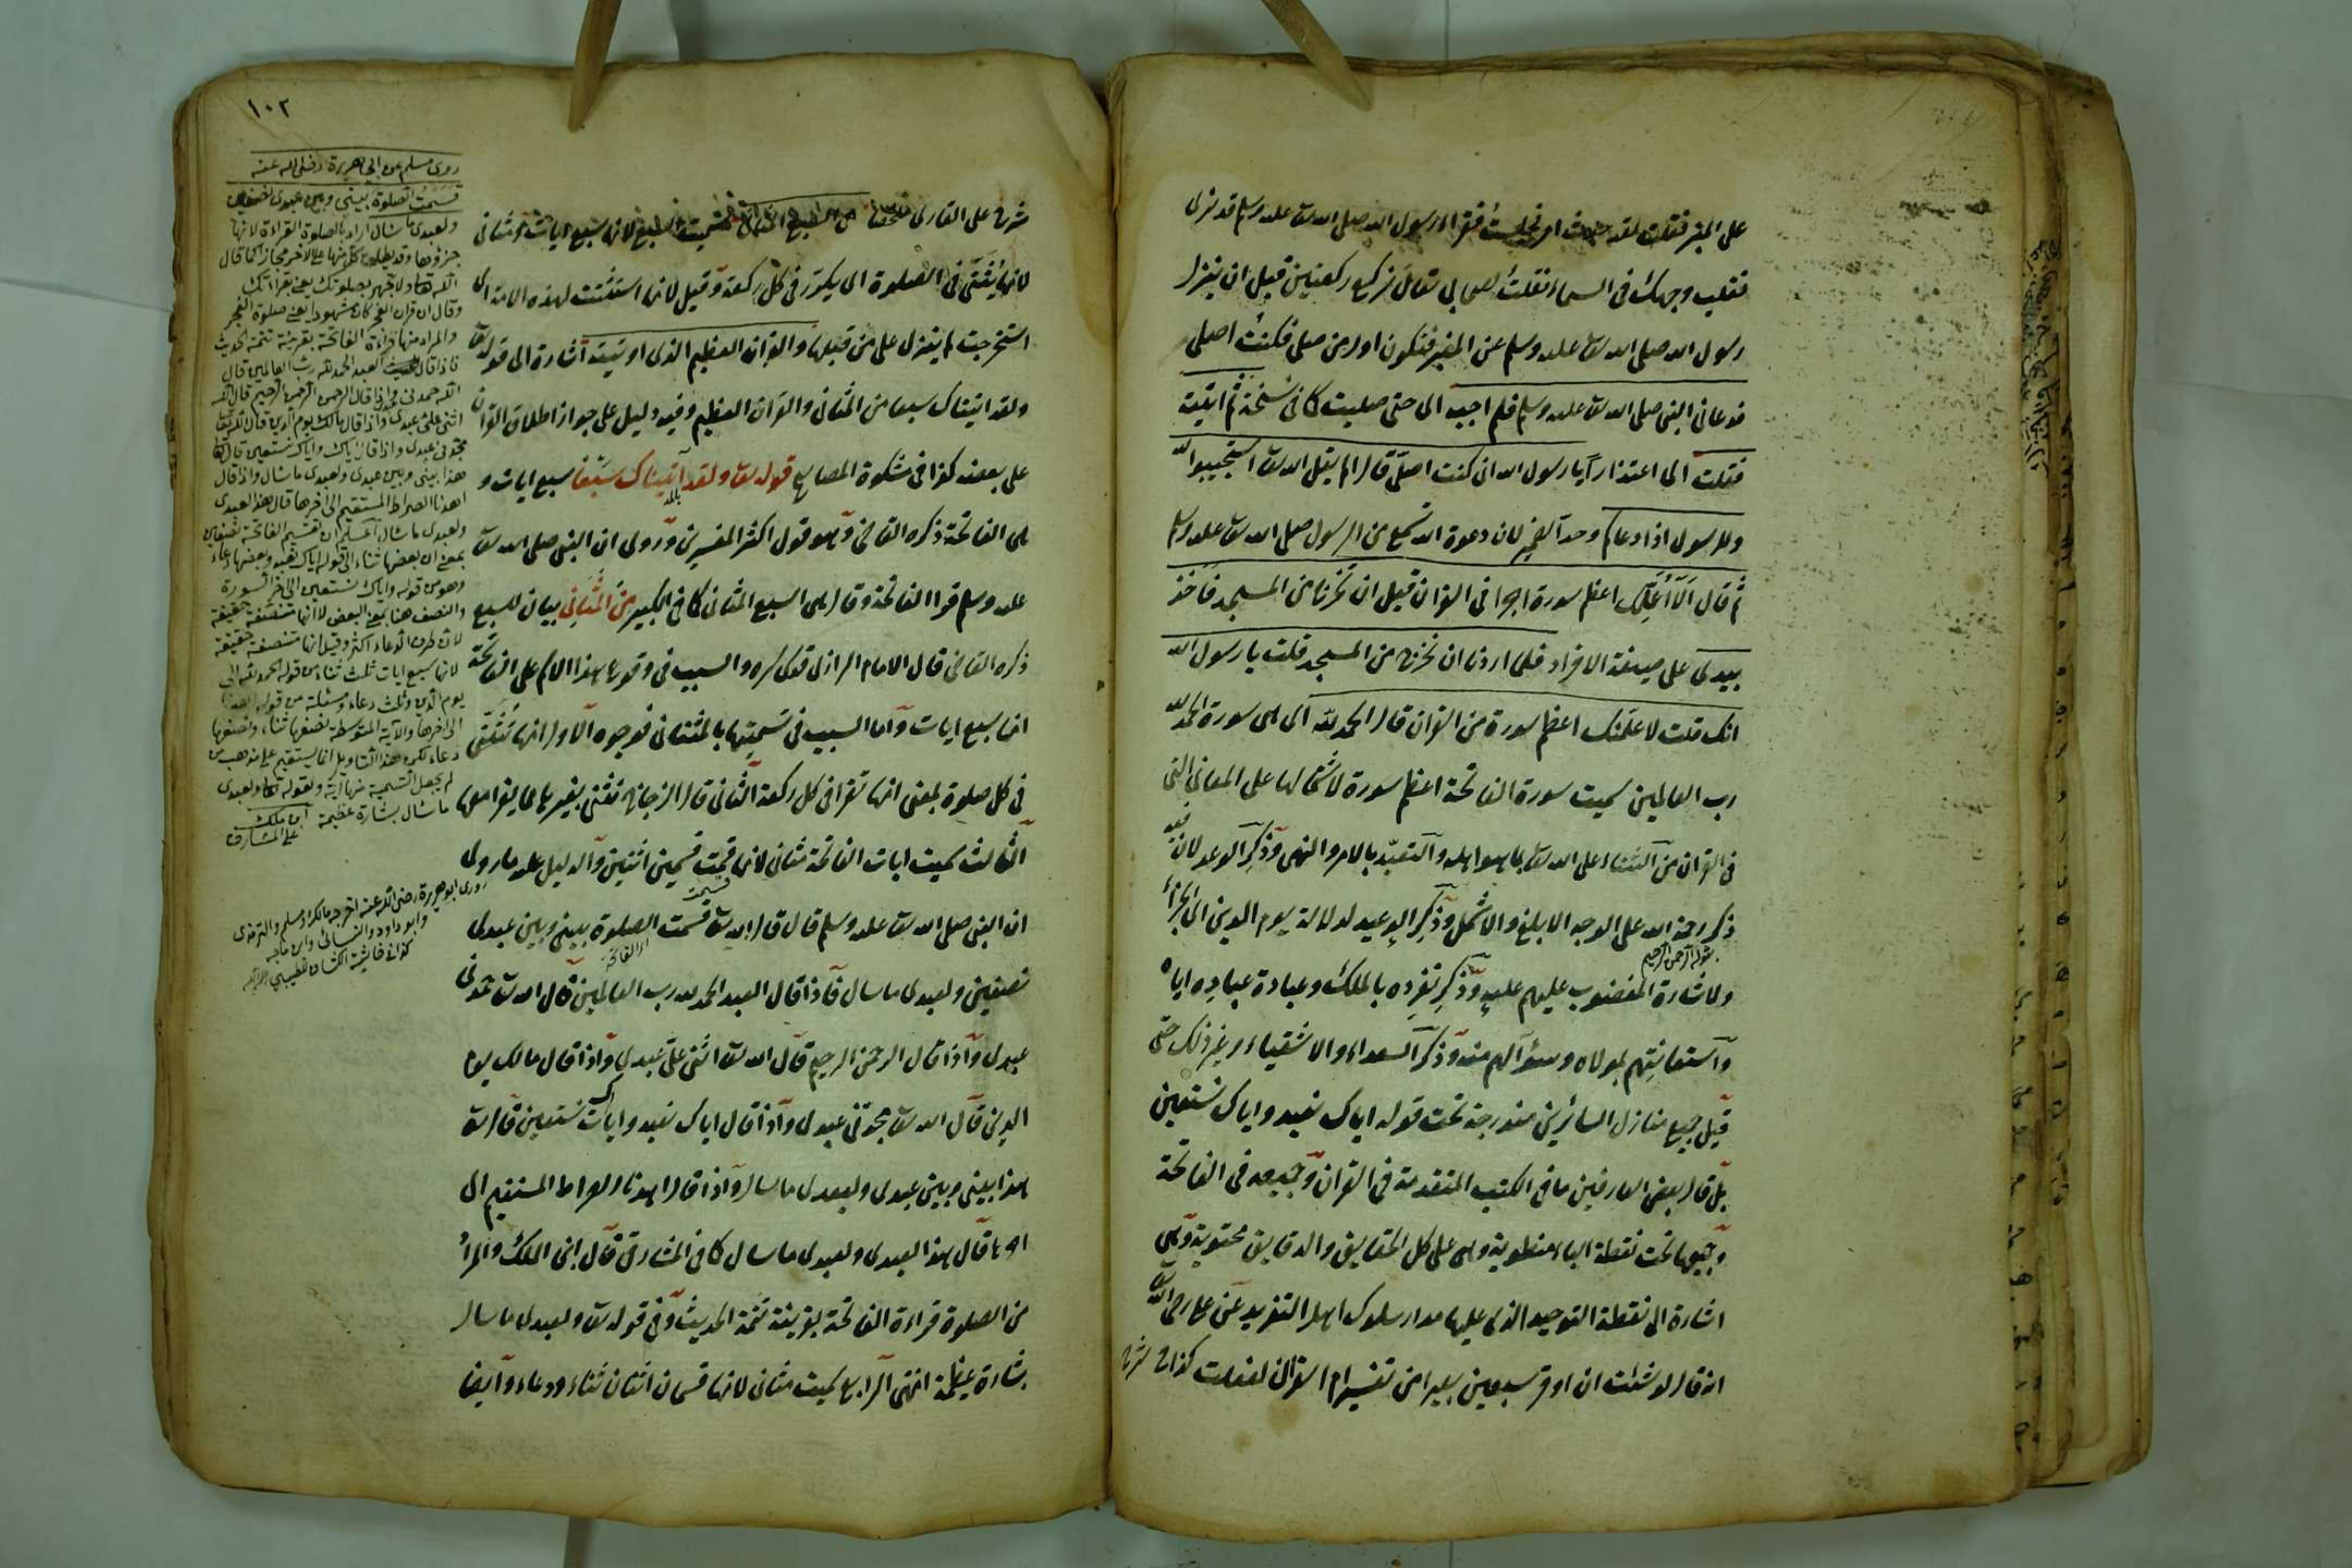 على المنبر فقلت لقد حدث امر فجلست فقرأ رسول الله صلى الله تعالى عليه وسلم قد نرى
تقلب وجهك فى السماء فقلت لصاحبى تعال نركع ركعتين قبل ان ينزل
رسول الله صلى الله تعالى عليه وسلم عن المنبر فنكون اول من صلى فكنت اصلى
فدعانى النبى صلى الله تعالى عليه وسلم فلم اجبه اى حتى صليت كما فى نسخة ثم اتيته
فقلت اى اعتذارا يا رسول الله انى كنت اصلى قال الم يقل الله تعالى استجيبوا لله
وللرسول اذا دعاكم وحد الضمير لان دعوة الله تسمع من الرسول صلى الله تعالى عليه وسلم
ثم قال الا اعلمك اعظم سورة اجرا فى القرآن قبل ان تخرج من المسجد فاخذ
بيدى على صيغة الافراد فلما اردنا ان نخرج من المسجد قلت يا رسول الله
انك قلت لاعلمنك اعظم سورة من القرآن قال الحمد لله اى هى سورة الحمد لله
رب العالمين سميت سورة الفاتحة اعظم سورة لاشتمالها على المعانى التى
فى القرآن من الثناء على الله تعالى بما هو اهله والتعبد بالامر والنهى وذكر الوعد لان فيه
ذكر رحمة الله على الوجه الابلغ والاشمل وذكر الوعيد لدلالة يوم الدين اى الجزاء
بقوله الرحمن الرحيم
ولاشارة المغضوب عليهم عليه وذكر تفرده بالملك وعبادة عباده اياه
واستعانتهم بمولاه وسؤالهم منه وذكر السعداء والاشقياء وغير ذلك حتى
قيل جميع منازل السائرين مندرجة تحت قوله اياك نعبد واياك نستعين
بل قال بعض العارفين ما فى الكتب المتقدمة فى القرآن وجميعه فى الفاتحة
وجميعها تحت نقطة الباء منطوية وهى على كل الحقايق والدقايق محتوية وهى
اشارة الى نقطة التوحيد الذى عليها مدار سلوك اهل التفريد عن على رضى الله تعالى
انه قال لو شئت ان اوقر سبعين بعيرا من تفسير ام القرآن لفعلت كذا فى شرح
١٠٢
شرح على القارى هى السبع المثانى سميت السبع لانها سبع ايات مثانى
لانها تثنى فى الصلوة اى يكرر فى كل ركعة وقيل لانها استثنيت لهذه الامة اى
استخرجت لم ينزل على من قبلها والقرآن العظيم الذى اوتيته اشارة الى قوله تعالى
ولقد اتيناك سبعا من المثانى والقرآن العظيم وفيه دليل على جواز اطلاق القرآن
على بعضه كذا فى مشكوة المصابيح قوله تعالى ولقد آتيناك سبعا سبع ايات و
هى الفاتحة ذكره القاضى وهو قول اكثر المفسرين وروى ان النبى صلى الله تعالى
عليه وسلم قرا الفاتحة وقال هى السبع المثانى كما فى الكبير من المثانى بيان للسبع
ذكره القاضى قال الامام الرازى قدس سره والسبب فى وقوع هذا الاسم على الفاتحة
انها سبع ايات واما السبب فى تسميتها بالمثانى فوجوه الاول انها تثنى
فى كل صلوة بمعنى انها تقرا فى كل ركعة الثانى قال الزجاج تثنى بغيرها مما يقرا معها
الثالث سميت ايات الفاتحة مثانى لانها قسمت قسمين اثنين والدليل عليه ما روى
ان النبى صلى الله تعالى عليه وسلم قال قال الله تعالى قسمت الصلوة بينى وبين عبدى
اى الفاتحة
نصفين ولعبدى ما سال فاذا قال العبد الحمد لله رب العالمين قال الله تعالى حمدنى
عبدى واذا قال الرحمن الرحيم قال الله تعالى اثنى على عبدى واذا قال مالك يوم
الدين قال الله تعالى مجدنى عبدى واذا قال اياك نعبد واياك نستعين قال تعالى
هذا بينى وبين عبدى ولعبدى ما سال واذا قال اهدنا الصراط المستقيم الى
اخرها قال هذا لعبدى ولعبدى ما سال كما فى المشارق قال ابن الملك والمراد
من الصلوة قراءة الفاتحة بقرينة تتمة الحديث وفى قوله تعالى ولعبدى ما سال
بشارة عظيمة انتهى الرابع سميت مثانى لانها قسمان اثنان ثناء ودعاء وايضا
روى مسلم عن ابى هريرة رضى الله عنه
قسمت الصلوة بينى وبين عبدى نصفين
ولعبدى ما سأل اراد بالصلوة القراءة لانها
جزؤها وقد يطلق كل منهما على الآخر مجازا كما قال
الله تعالى ولا تجهر بصلوتك يعنى بقراءتك
وقال ان قرآن الفجر كان مشهودا يعنى صلوة الفجر
والمراد منها قراءة الفاتحة بقرينة تتمة الحديث
فاذا قال العبد الحمد لله رب العالمين قال
الله حمدنى عبدى واذا قال الرحمن الرحيم قال الله
اثنى على عبدى واذا قال مالك يوم الدين قال الله تعالى
مجدنى عبدى واذا قال اياك نعبد واياك نستعين قال الله تعالى
هذا بينى وبين عبدى ولعبدى ما سأل واذا قال
اهدنا الصراط المستقيم الى آخرها قال هذا لعبدى
ولعبدى ما سأل اعلم ان تقسيم الفاتحة نصفين
بمعنى ان بعضها ثناء الى قوله اياك نعبد وبعضها دعاء
وهو من قوله واياك نستعين الى اخر السورة
والنصف هنا بمعنى البعض لا انها متنصفة حقيقة
لان طرف الدعاء اكثر وقيل انها متنصفة حقيقة
لانها سبع ايات ثلث ثناء من قوله الحمد لله الى
يوم الدين وثلث دعاء ومسئلة من قوله اهدنا
الى اخرها والآية المتوسطة نصفها ثناء ونصفها
دعاء لكن هذا التأويل انما يستقيم على مذهب من
لم يجعل التسمية منها آية وبقوله تعالى ولعبدى
ما سأل بشارة عظيمة ابن ملك
على المشارق
روى ابو هريرة رضى الله عنه اخرجه مالك ومسلم والترمذى
وابو داود والنسائى وابن ماجه
كذا فى حاشية الكشاف للطيبى